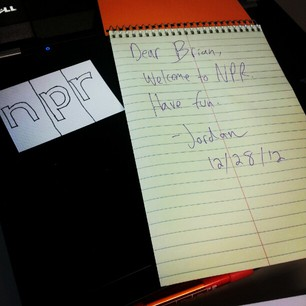 DELL
npr
Dear Brian,
Welcome to NPR.
Have fun.
-Jordan
12/28/12